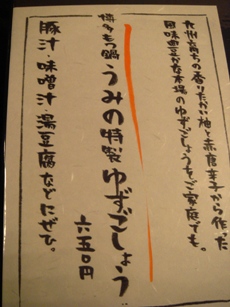 九州育ちの香りたかい柚と赤唐辛子から作った
風味豊かな本場のゆずごしょうをご家庭でも。
博多もつ鍋うみの特製ゆずごしょう
六五〇円
豚汁・味噌汁・湯豆腐などにぜひ。